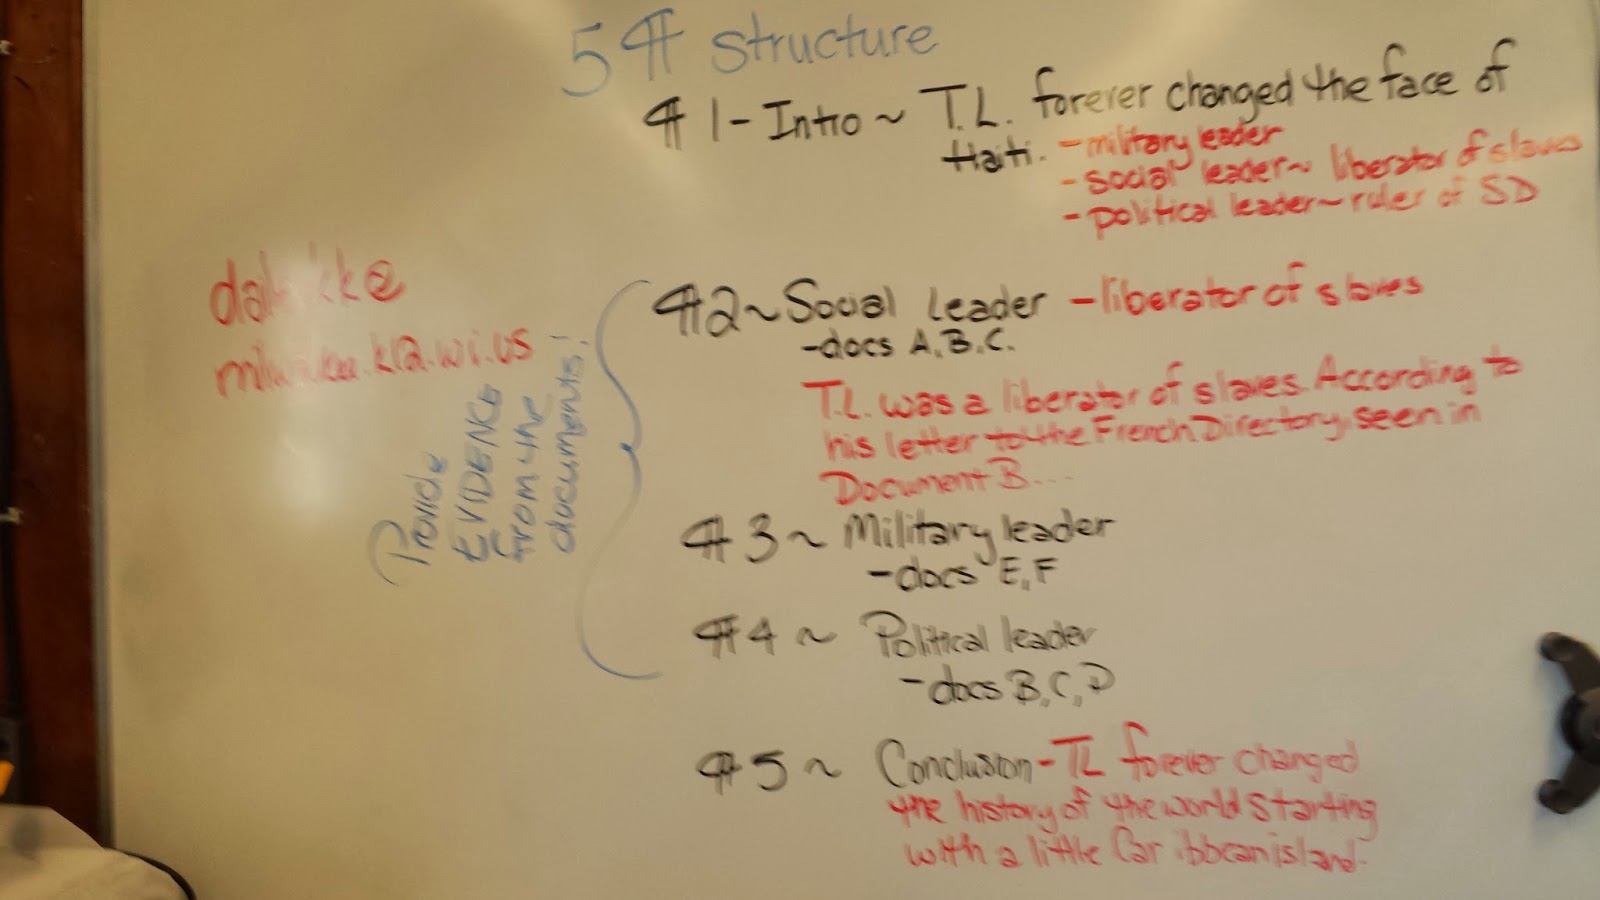 5 ¶ structure
¶ 1 - Intro ~ T.L. forever changed the face of
Haiti. - military leader
- social leader ~ liberator of slaves
- political leader ~ ruler of SD
¶2 ~ Social leader - liberator of slaves
- docs A, B, C.
T.L. was a liberator of slaves. According to
his letter to the French Directory, seen in
Document B...
¶ 3 ~ Military leader
- docs E, F
¶ 4 ~ Political leader
- docs B, C, D
¶ 5 ~ Conclusion - TL forever changed
the history of the world starting
with a little Caribbean island.
Provide
EVIDENCE
from the
documents!
.k12.wi.us